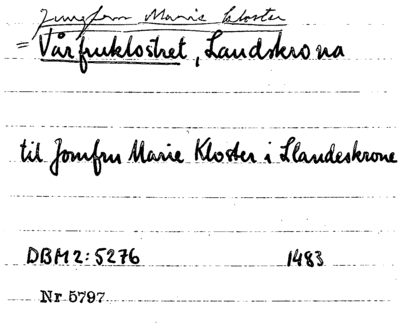 Jungfru Marie kloster
= Vårfruklostret, Landskrona
til Jomfru Marie Kloster i Llandeskrone
DBM 2:5276 1483
Nr 5797